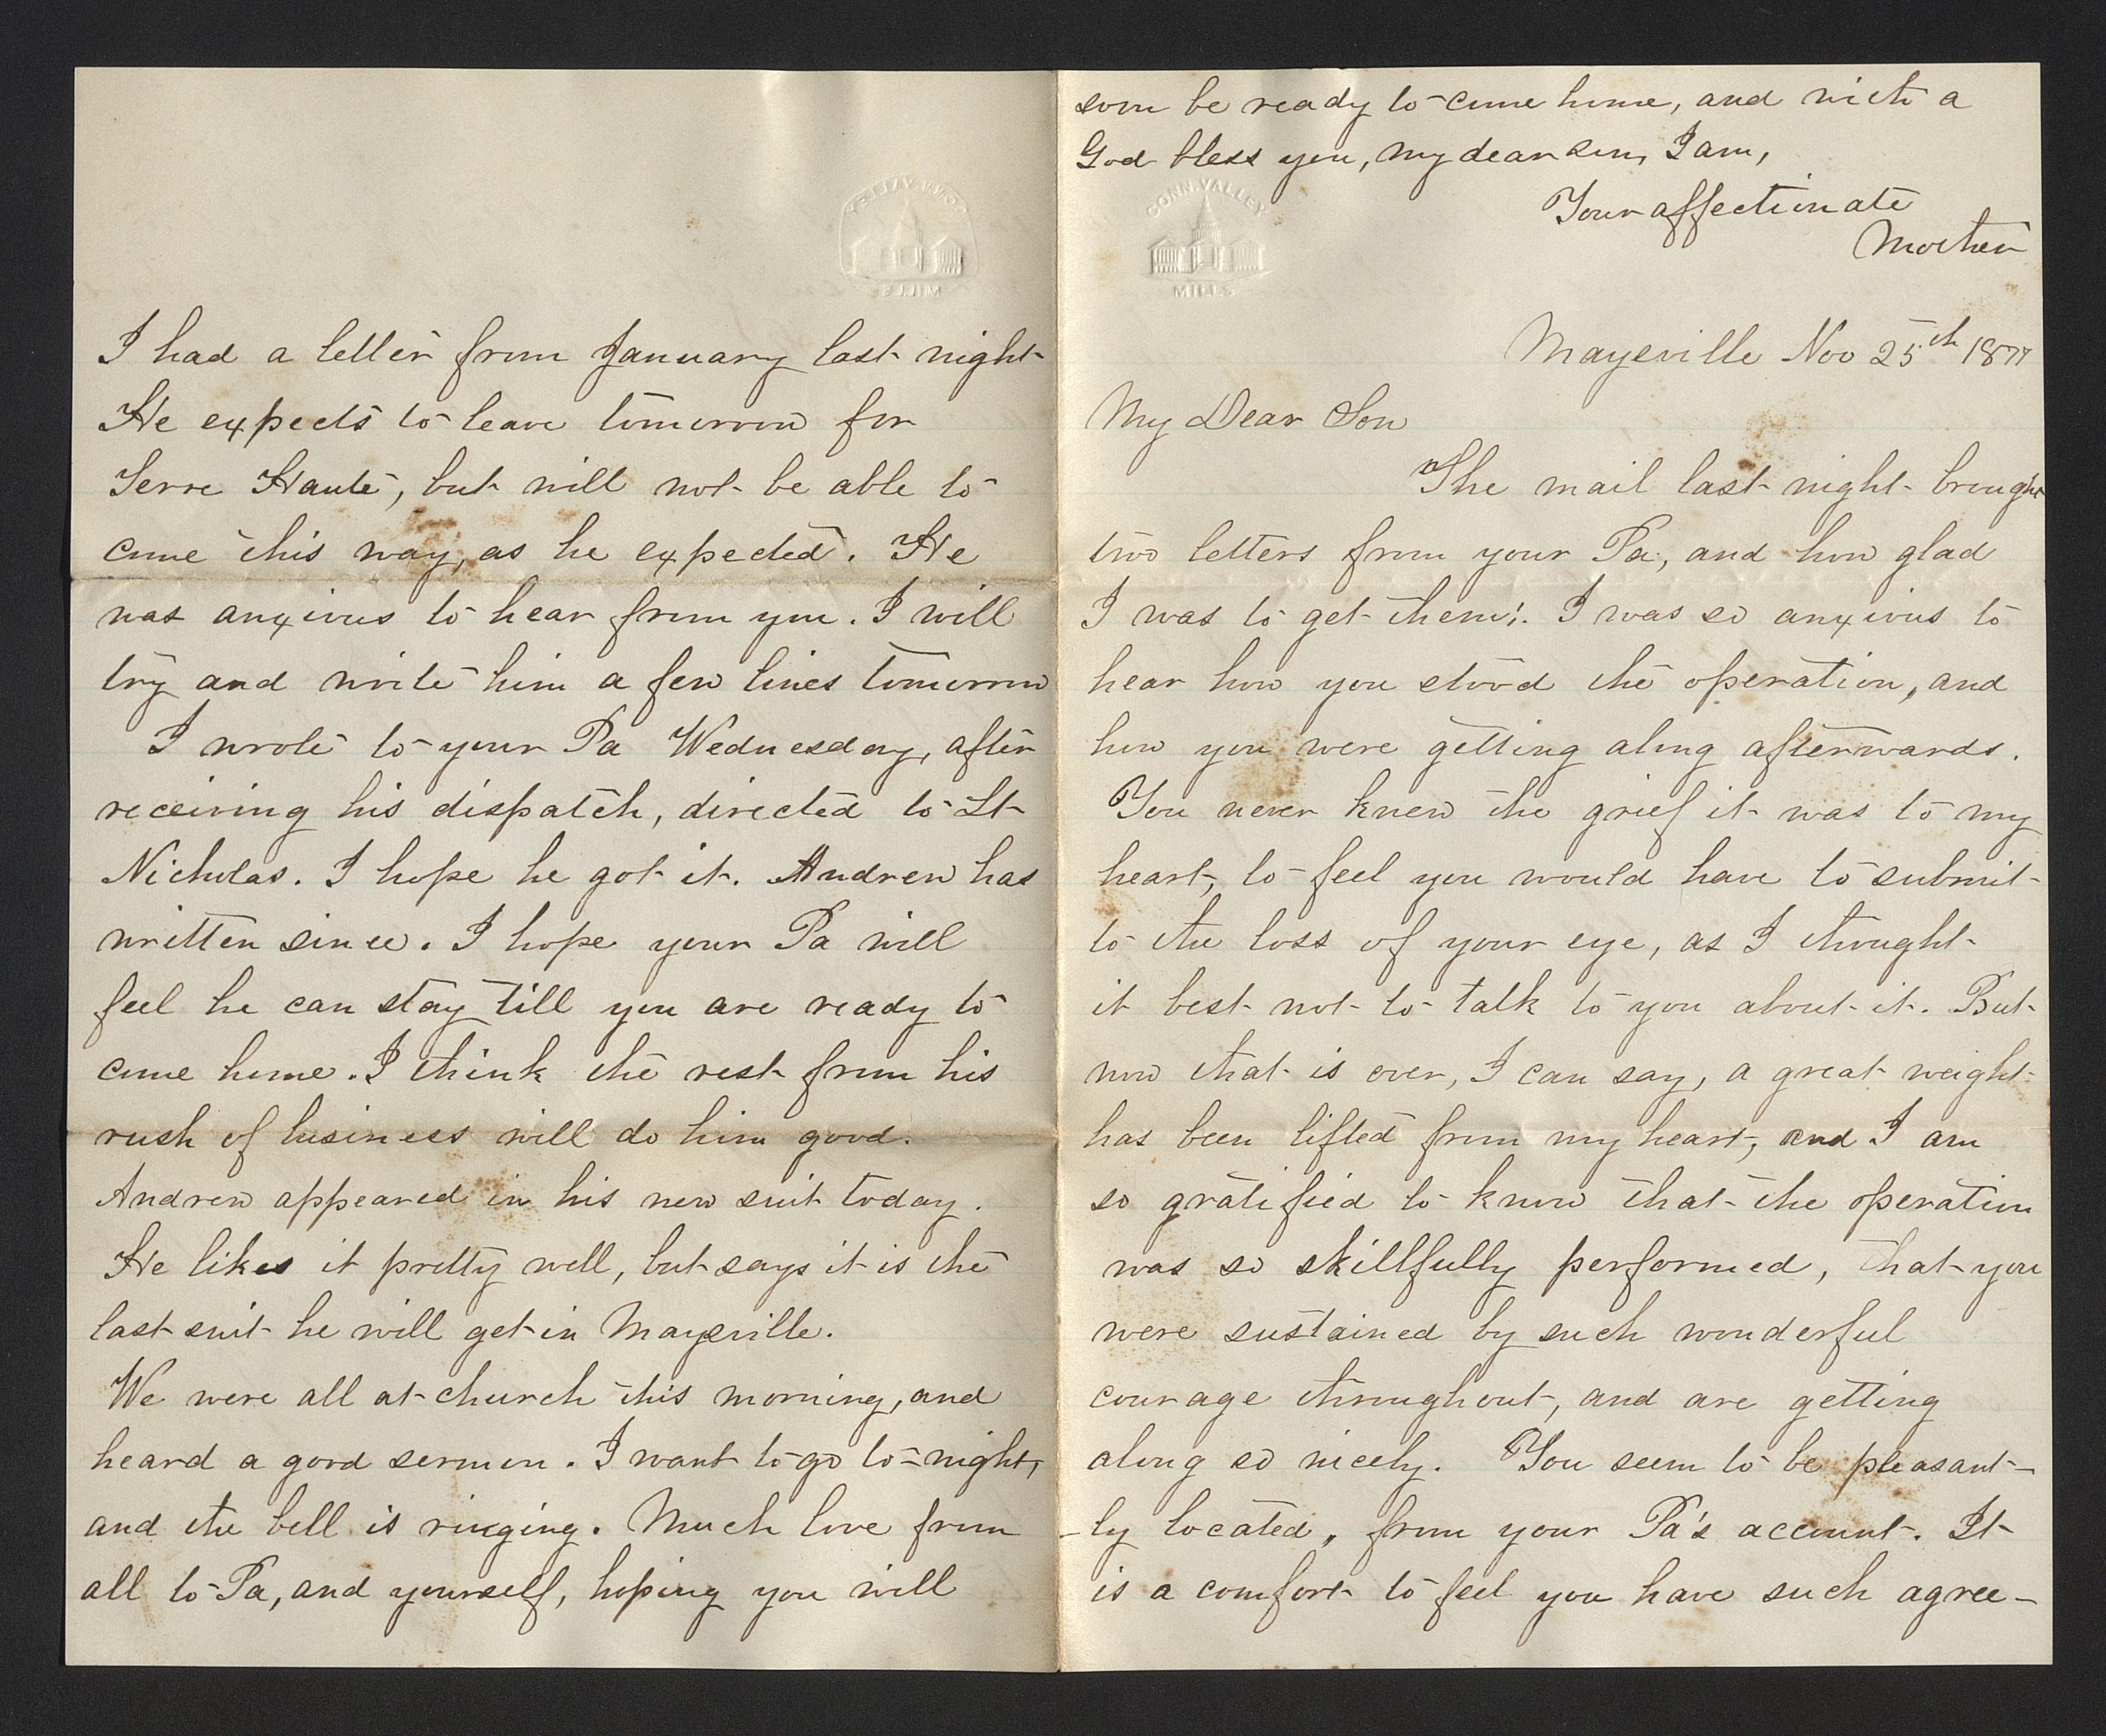 Maysville Nov 25th 1877
My Dear Son
The mail last night brought
two letters from your Pa, and how glad
I was to get them! I was so anxious to
hear how you stood the operation, and
how you were getting along afterwards.
You never knew the grief it was to my
heart, to feel you would have to submit
to the loss of your eye, as I thought
it best not to talk to you about it. But
now that is over, I can say, a great weight
has been lifted from my heart, and I am
so gratified to know that the operation
was so skillfully performed, that you
were sustained by such wonderful
courage throughout, and are getting
along so nicely. You seem to be pleasant-
-ly located, from your Pa's account. It
is a comfort to feel you have such agree-
I had a letter from January last night
He expects to leave tomorrow for
Terre Haute, but will not be able to
come this way, as he expected. He
was anxious to hear from you. I will
try and write him a few lines tomorrow
I wrote to your Pa Wednesday, after
receiving his dispatch, directed to St
Nicholas. I hope he got it. Andrew has
written since. I hope your Pa will
feel he can stay till you are ready to
come home. I think the rest from his
rush of business will do him good.
Andrew appeared in his new suit today.
He likes it pretty well, but says it is the
last suit he will get in Maysville.
We were all at church this morning, and
heard a good sermon. I want to go to-night,
and the bell is ringing. Much love from
all to Pa, and yourself, hoping you will
soon be ready to come home, and with a
God bless you, my dear son, I am,
Your affectionate
Mother
CONN. VALLEY
MILLS